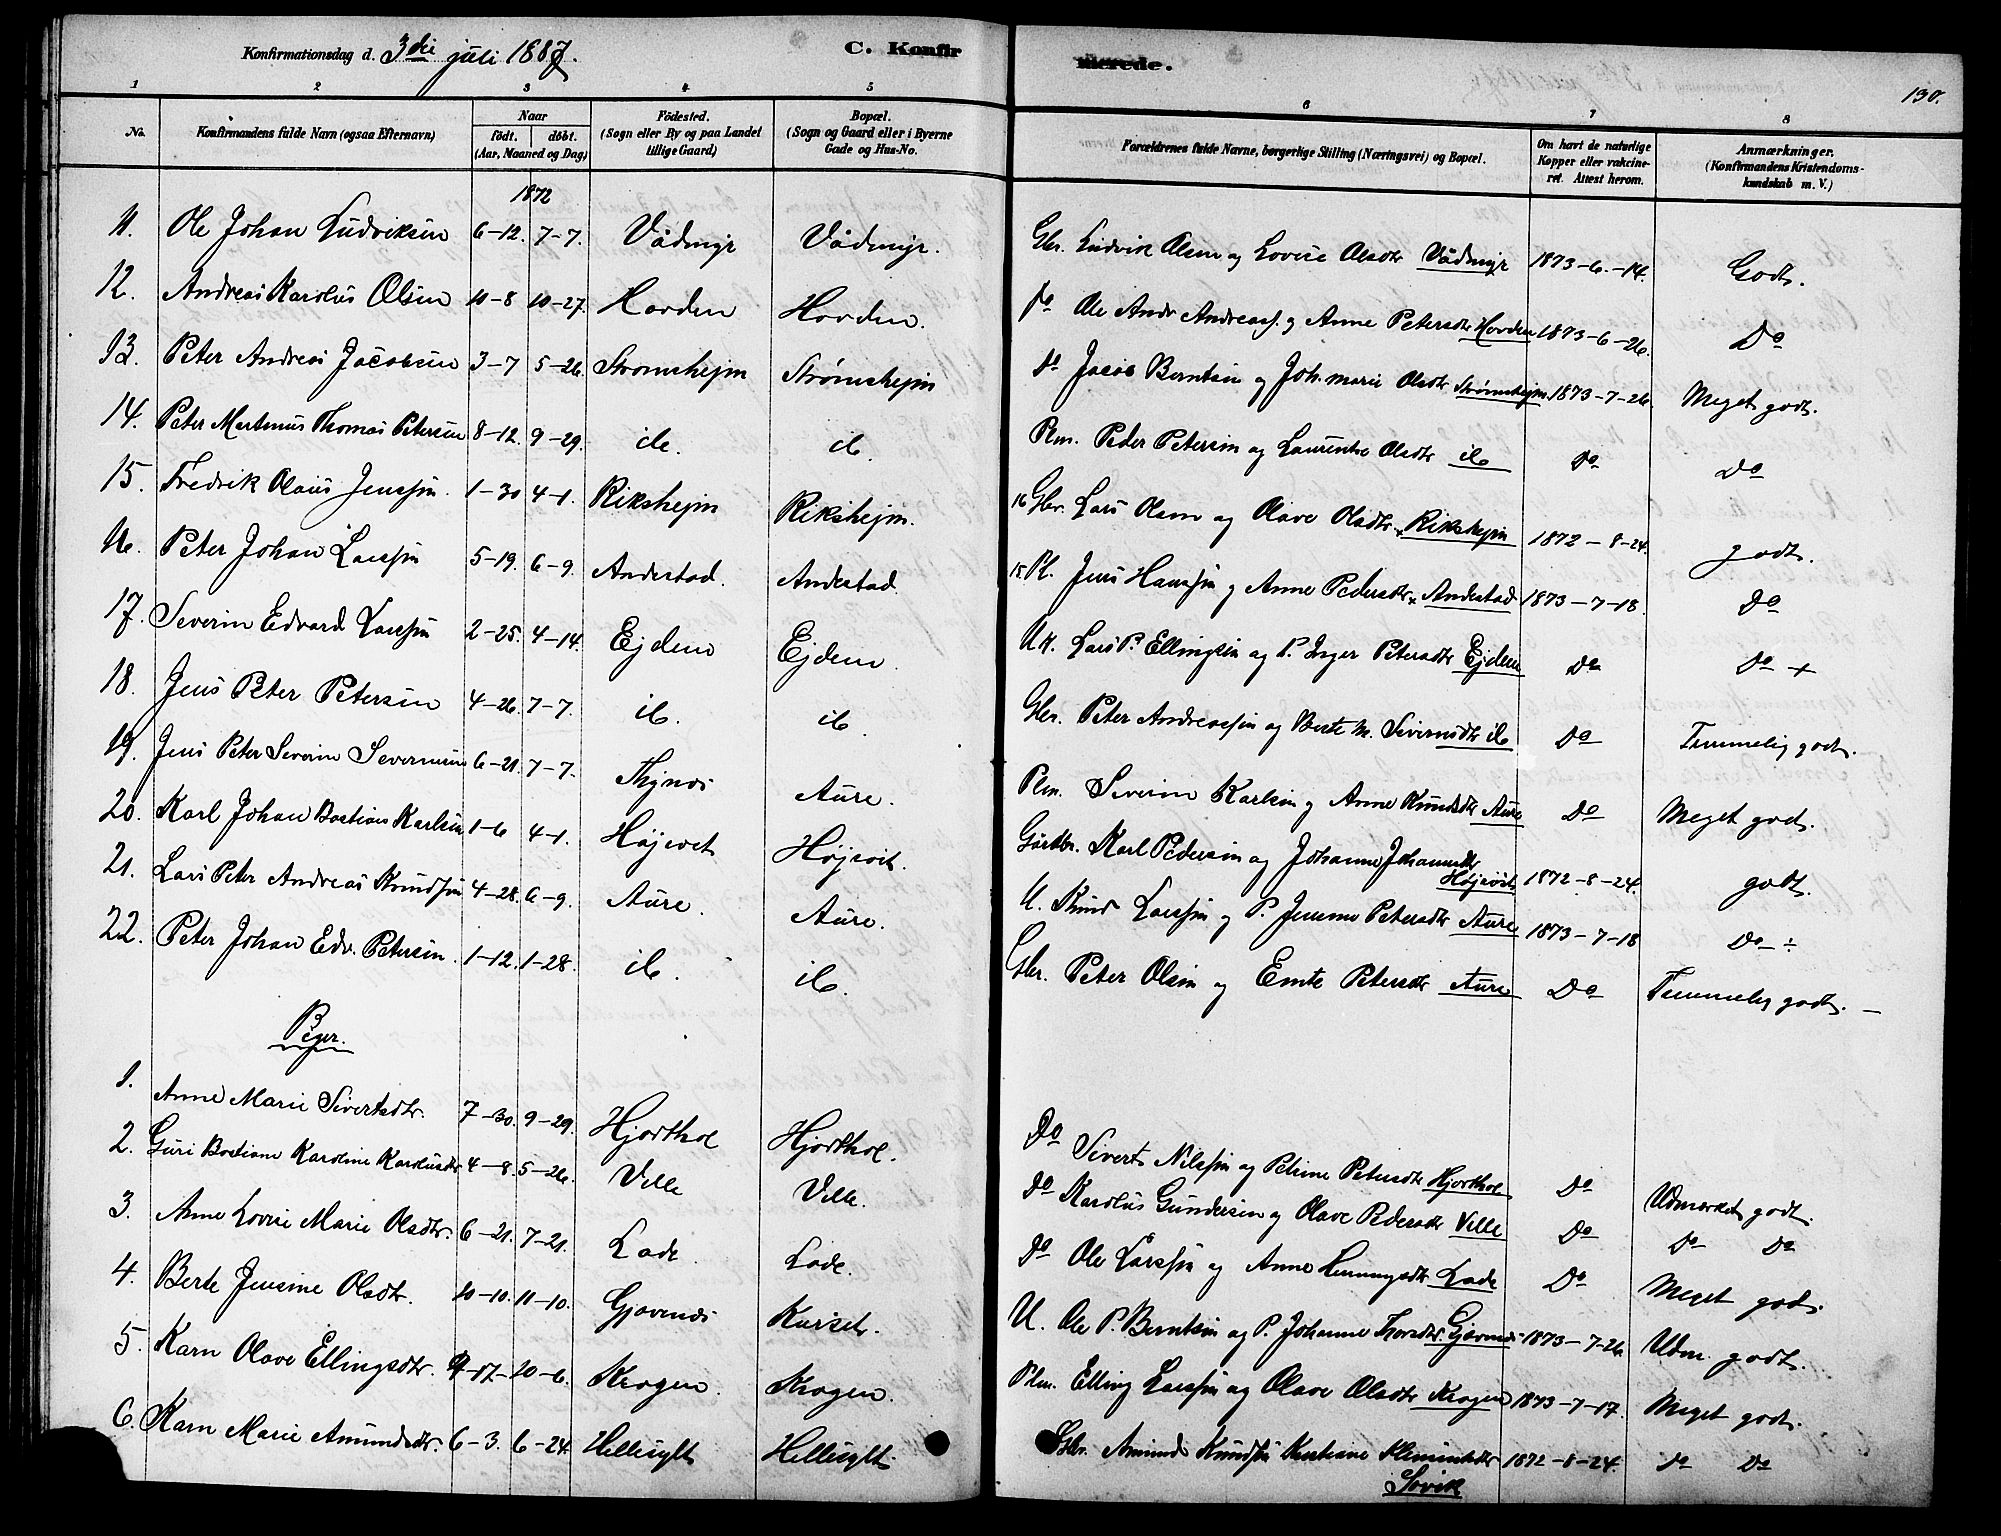 Konfirmationsdag d. 3die juli 1887.
C. Konfirmerede.
130.
1 2 3 4 5 6 7 8
No. Konfirmandens fulde Navn (ogsaa Efternavn) Naar født. døbt. (Aar, Maaned og Dag) Fødested. (Sogn eller By og paa Landet tillige Gaard) Bopæl. (Sogn og Gaard eller i Byerne Gade og Hus-No. Forældrenes fulde Navne, borgerlige Stilling (Næringsvei) og Bopæl. Om havt de naturlige Kopper eller vakcineret. Attest herom. Anmærkninger. (Konfirmandens Kristendomskundskab m. V.)
1872
11. Ole Johan Ludviksen 6-12. 7-7. Vådmyr Vådmyr. Gbr. Ludvik Olsen og Lovise Olsdtr Vådmyr 1873-6-14. Godt.
12. Andreas Karolus Olsen 10-8 10-27. Hovden Hovden. do Ole Andr Andreass. og Anne Petersdtr Hovden 1873-6-26. Do
13. Peter Andreas Jacobsen 3-7 5-26. Strømshejm Strømshejm do Jacob Berntsen og Joh. marie Olsdtr Strømshejm 1873-7-26. Meget godt.
14. Peter Martinus Thomas Petersen 8-12. 9-29. ib. ib. Plm. Peder Petersen og Laurentse Olsdtr ib Do Do
15. Fredrik Olaus Jenssen. 1-30 4-1. Rikshejm Rikshejm. 16 Gbr. Lars Olsen og Olave Olsdtr. x Rikshejm 1872-8-24. godt.
16. Peter Johan Larssen 5-19. 6-9. Andestad. Andestad 15. Pl. Jens Hanssen og Anne Pedersdtr x Andestad 1873-7-18. Do
17. Severin Edvard Larssen 2-25. 4-14. Ejdem Ejdem. U.K. Lars P. Ellingsen og P. Inger Petersdtr Ejdem Do Do +
18. Jens Peter Petersen 4-26. 7-7. ib. ib. Gbr. Peter Andreassen og Berte M. Siverinsdtr ib Do Temmelig godt.
19. Jens Peter Severin Severinsen 6-21. 7-7. Thynes Aure. Plm. Severin Karlsen og Anne Knudsdtr Aure Do Meget godt.
20. Karl Johan Bastians Karlsen 1-6 4-1. Højset Højset. Gårdbr. Karl Pedersen og Johanne Johannesdtr Højset 1872-8-24. godt.
21. Lars Peter Andreas Knudsen 4-28. 6-9. Aure. Aure. U. Knud Larssen og P. Jensine Petersdtr Aure 1873-7-18 Do ÷
22. Peter Johan Edv. Petersen. 1-12. 1-28. ib. ib. Gbr. Peter Olsen og Emte Petersdtr Aure Do Temmelig godt. –
Piger.
1. Anne Marie Sivertsdtr. 7-30. 9-29. Hjorthol Hjorthol. Do Sivert Nilssen og Petrine Petersdtr Hjorthol Do Udmærket godt.
2. Guri Bastiane Karoline Karolusdtr 4-8. 5-26. Velle Velle. do Karolus Gundersen og Olave Pedersdtr Velle Do Do Do
3. Anne Lovise Marie Olsdtr. 6-21. 7-21. Lade Lade. do Ole Larssen og Anne Henningsdtr Lade Do Meget godt.
4. Berte Jensine Olsdtr. 10-10. 11-10. Gjævenes Kurset. U. Ole P. Berntsen og P. Johanne Thorsdtr. Gjævenes 1873-7-26. Udm. godt.
5. Karn Olave Ellingsdtr. 9-17- 10-6. Krogen. Krogen. Plm. Elling Larssen og Olave Olsdtr Krogen 1873-7-17. Meget godt.
6. Karn Marie Amundsdtr. 6-3. 6-24. Hellesylt Hellesylt. Gbr. Amund Knudsen Kristiane Klemmetsdtr Søvik 1872-8-24. do Do